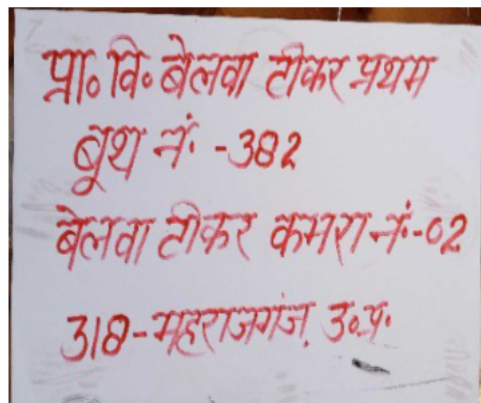 प्रा॰ वि॰ बेलवा टीकर प्रथम
बुथ नं॰ -382
बेलवा टीकर कमरा नं॰-02
318-महराजगंज, उ॰प्र॰